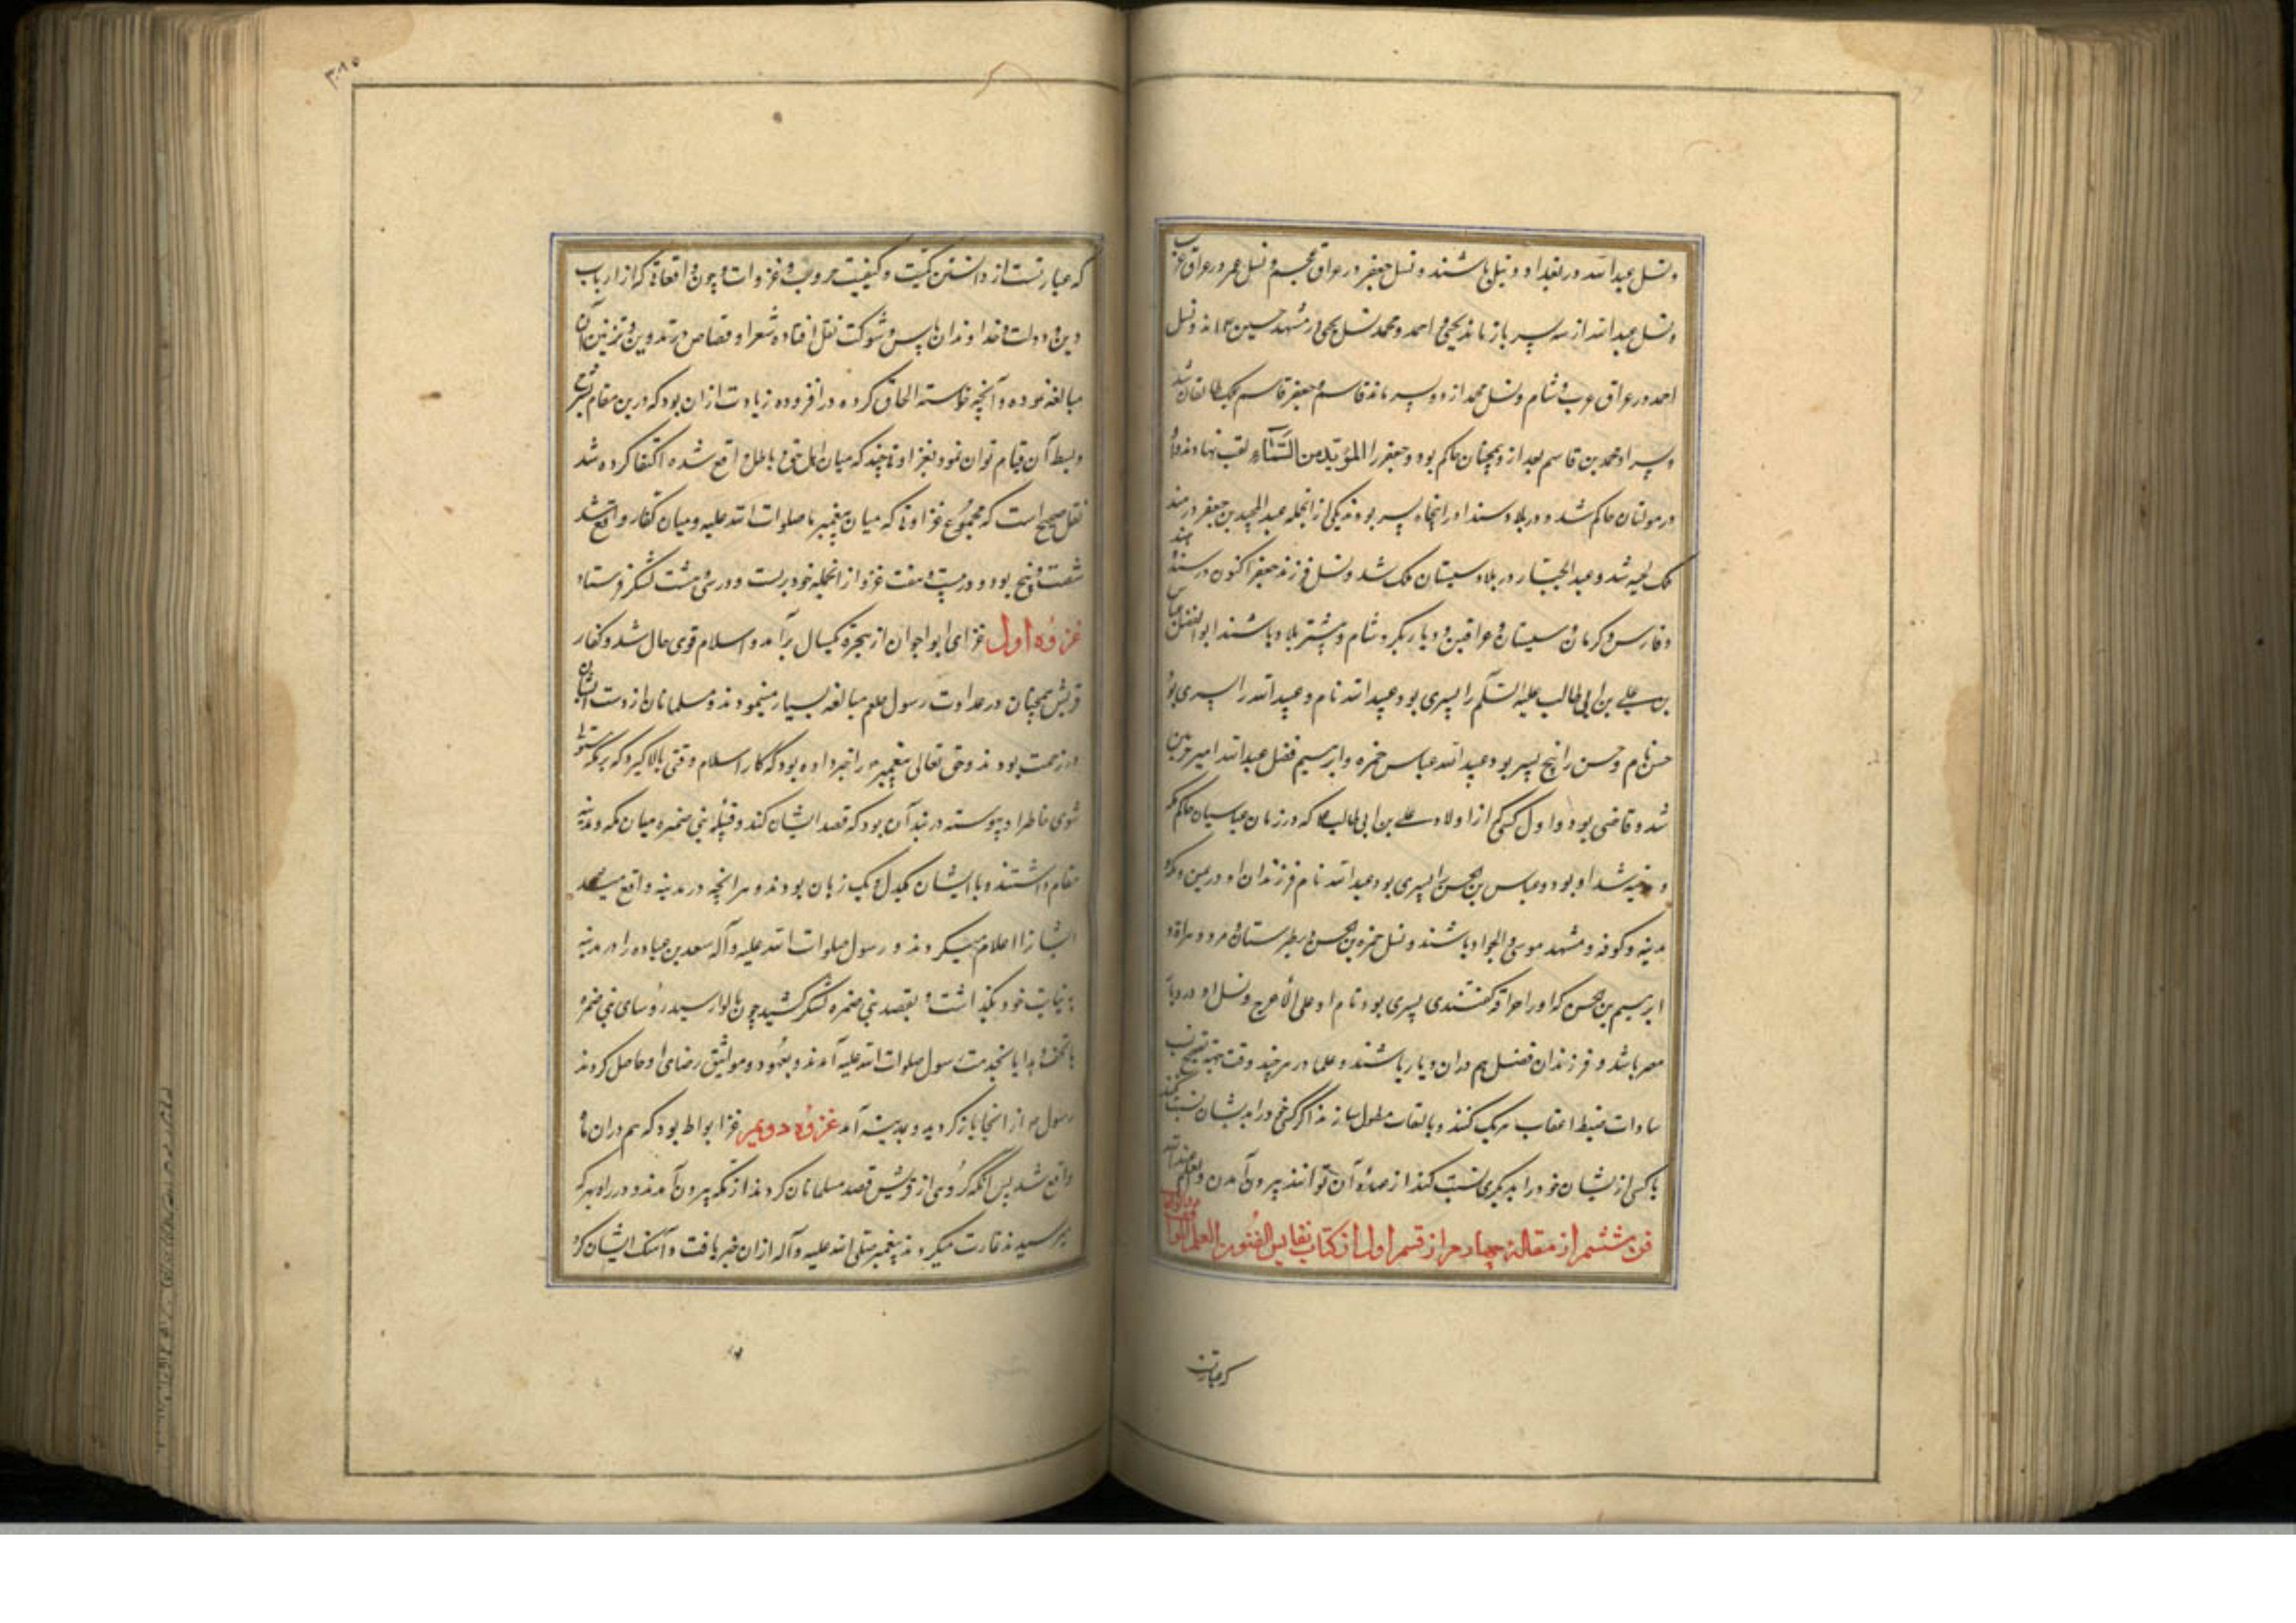 ونسل عبدالله در بغداد و نیل باشند ونسل جعفر در عراق عجم ونسل عمر در عراق عرب
ونسل عبدالله از سه پسر باز ماند یحیی و احمد و محمد نسل یحیی در مشهد حسین ع اند ونسل
احمد در عراق عرب و شام ونسل محمد از دو پسر ماند قاسم و جعفر قاسم ملک طالقان شد
وپسر او محمد بن قاسم بعد از و همچنان حاکم بود و جعفر را المؤید من السماء لقب نهادند و او
در مولتان حاکم شد و در بلاد سند او را پنجاه پسر بودند یکی از انجمله عبدالمجید بن جعفر در هند
ملک شد و عبدالجبار در بلاد سیستان ملک شد ونسل فرزند جعفر اکنون در سند و هند
وفارس و کرمان و سیستان و عراقین و دیار بکر و شام و بیشتر بلاد باشند ابوالفضل عباس
بن علی بن ابی طالب علیه السلم را پسری بود عبیدالله نام و عبیدالله را پسری بود
حسن نام وحسن را پنج پسر بود عبیدالله عباس حمزه وابرهیم فضل عبدالله امیر حرمین
شد و قاضی بود و اول کسی که از اولاد علی بن ابی طالب ع که در زمان عباسیان حاکم مکه
و مدینه شد او بود و عباس بن الحسن را پسری بود عبدالله نام فرزندان او در یمن و مکه و
مدینه و کوفه و مشهد موسی و الجواد باشند ونسل حمزه بن الحسن در طبرستان و مرو و هراة و
ابرهیم بن حسن که او را جردقه گفتندی پسری بود نام او علی الأعرج ونسل او در دیار
مصر باشد و فرزندان فضل هم دران دیار باشند و علما در هر چند وقت بجهة تصحیح نسب
سادات ضبط اعقاب هر یک کنند و بالقاب مطول سازند تا اگر کسی خود را بدیشان نسبت کند
یا کسی از یشان خود را بدیگری نسبت کند از عهده آن توانند بیرون آمدن والعلم عند الله
فن ششم از مقالهٔ چهارم از قسم اول از کتاب نفایس الفنون
که عبارتست
که عبارتست از دانستن کمیت و کیفیت حروب و غزوات و چون واقعاتی که از ارباب
دین و دولت و خداوندان باس و شوکت نقل افتاده شعرا و قصاص در تدوین و تزیین آن
مبالغه نموده و آنچه خواسته الحاق کرده در افزوده زیادت ازان بود که درین مقام بشرح
وبسط آن قیام توان نمود بغزاوتی چند که میان اهل حق و باطل واقع شده اکتفا کرده شد
نقل صحیح است که مجموع غزاوتی که میان پیغمبر ما صلوات الله علیه و میان کفار واقع شد
شصت و پنج بود و در بیست و هفت غزو از انجمله خود برفت و در سی و هشت لشکر فرستاد
غزوه اول غزای ابوا چون از هجرة یکسال برآمد و اسلام قوی حال شد و کفار
قریش همچنان در عداوت رسول صلعم مبالغه بسیار مینمودند و مسلمانان از دست ایشان
در زحمت بودند و حق تعالی پیغمبر را خبر داده بود که کار اسلام وقتی بالا گیرد که بر مکه مستولی
شوی خاطر او پیوسته در بند آن بود که قصد ایشان کند و قبیلهٔ بنی ضمره میان مکه و مدینه
مقام داشتند و با ایشان یکدل و یک زبان بودند و هر انچه در مدینه واقع میشد
ایشانرا اعلام میکردند و رسول صلوات الله علیه و آله سعد بن عباده را در مدینه
به نیابت خود بگذاشت و بقصد بنی ضمره لشکر کشید چون بابوا رسید رؤسای بنی ضمره
با تحف و هدایا بخدمت رسول صلوات الله علیه آمدند و بعهود و مواثیق رضای او حاصل کردند
رسول ص از انجا باز گردید و بمدینه آمد غزوه دویم غزا بواط بود که هم دران ماه
واقع شد پس آنکه گروهی از قریش قصد مسلمانان کردند از مکه بیرون آمدند و در راه بهر که
میرسیدند غارت میکردند پیغمبر صلی الله علیه و آله ازان خبر یافت و آهنگ ایشان کرد